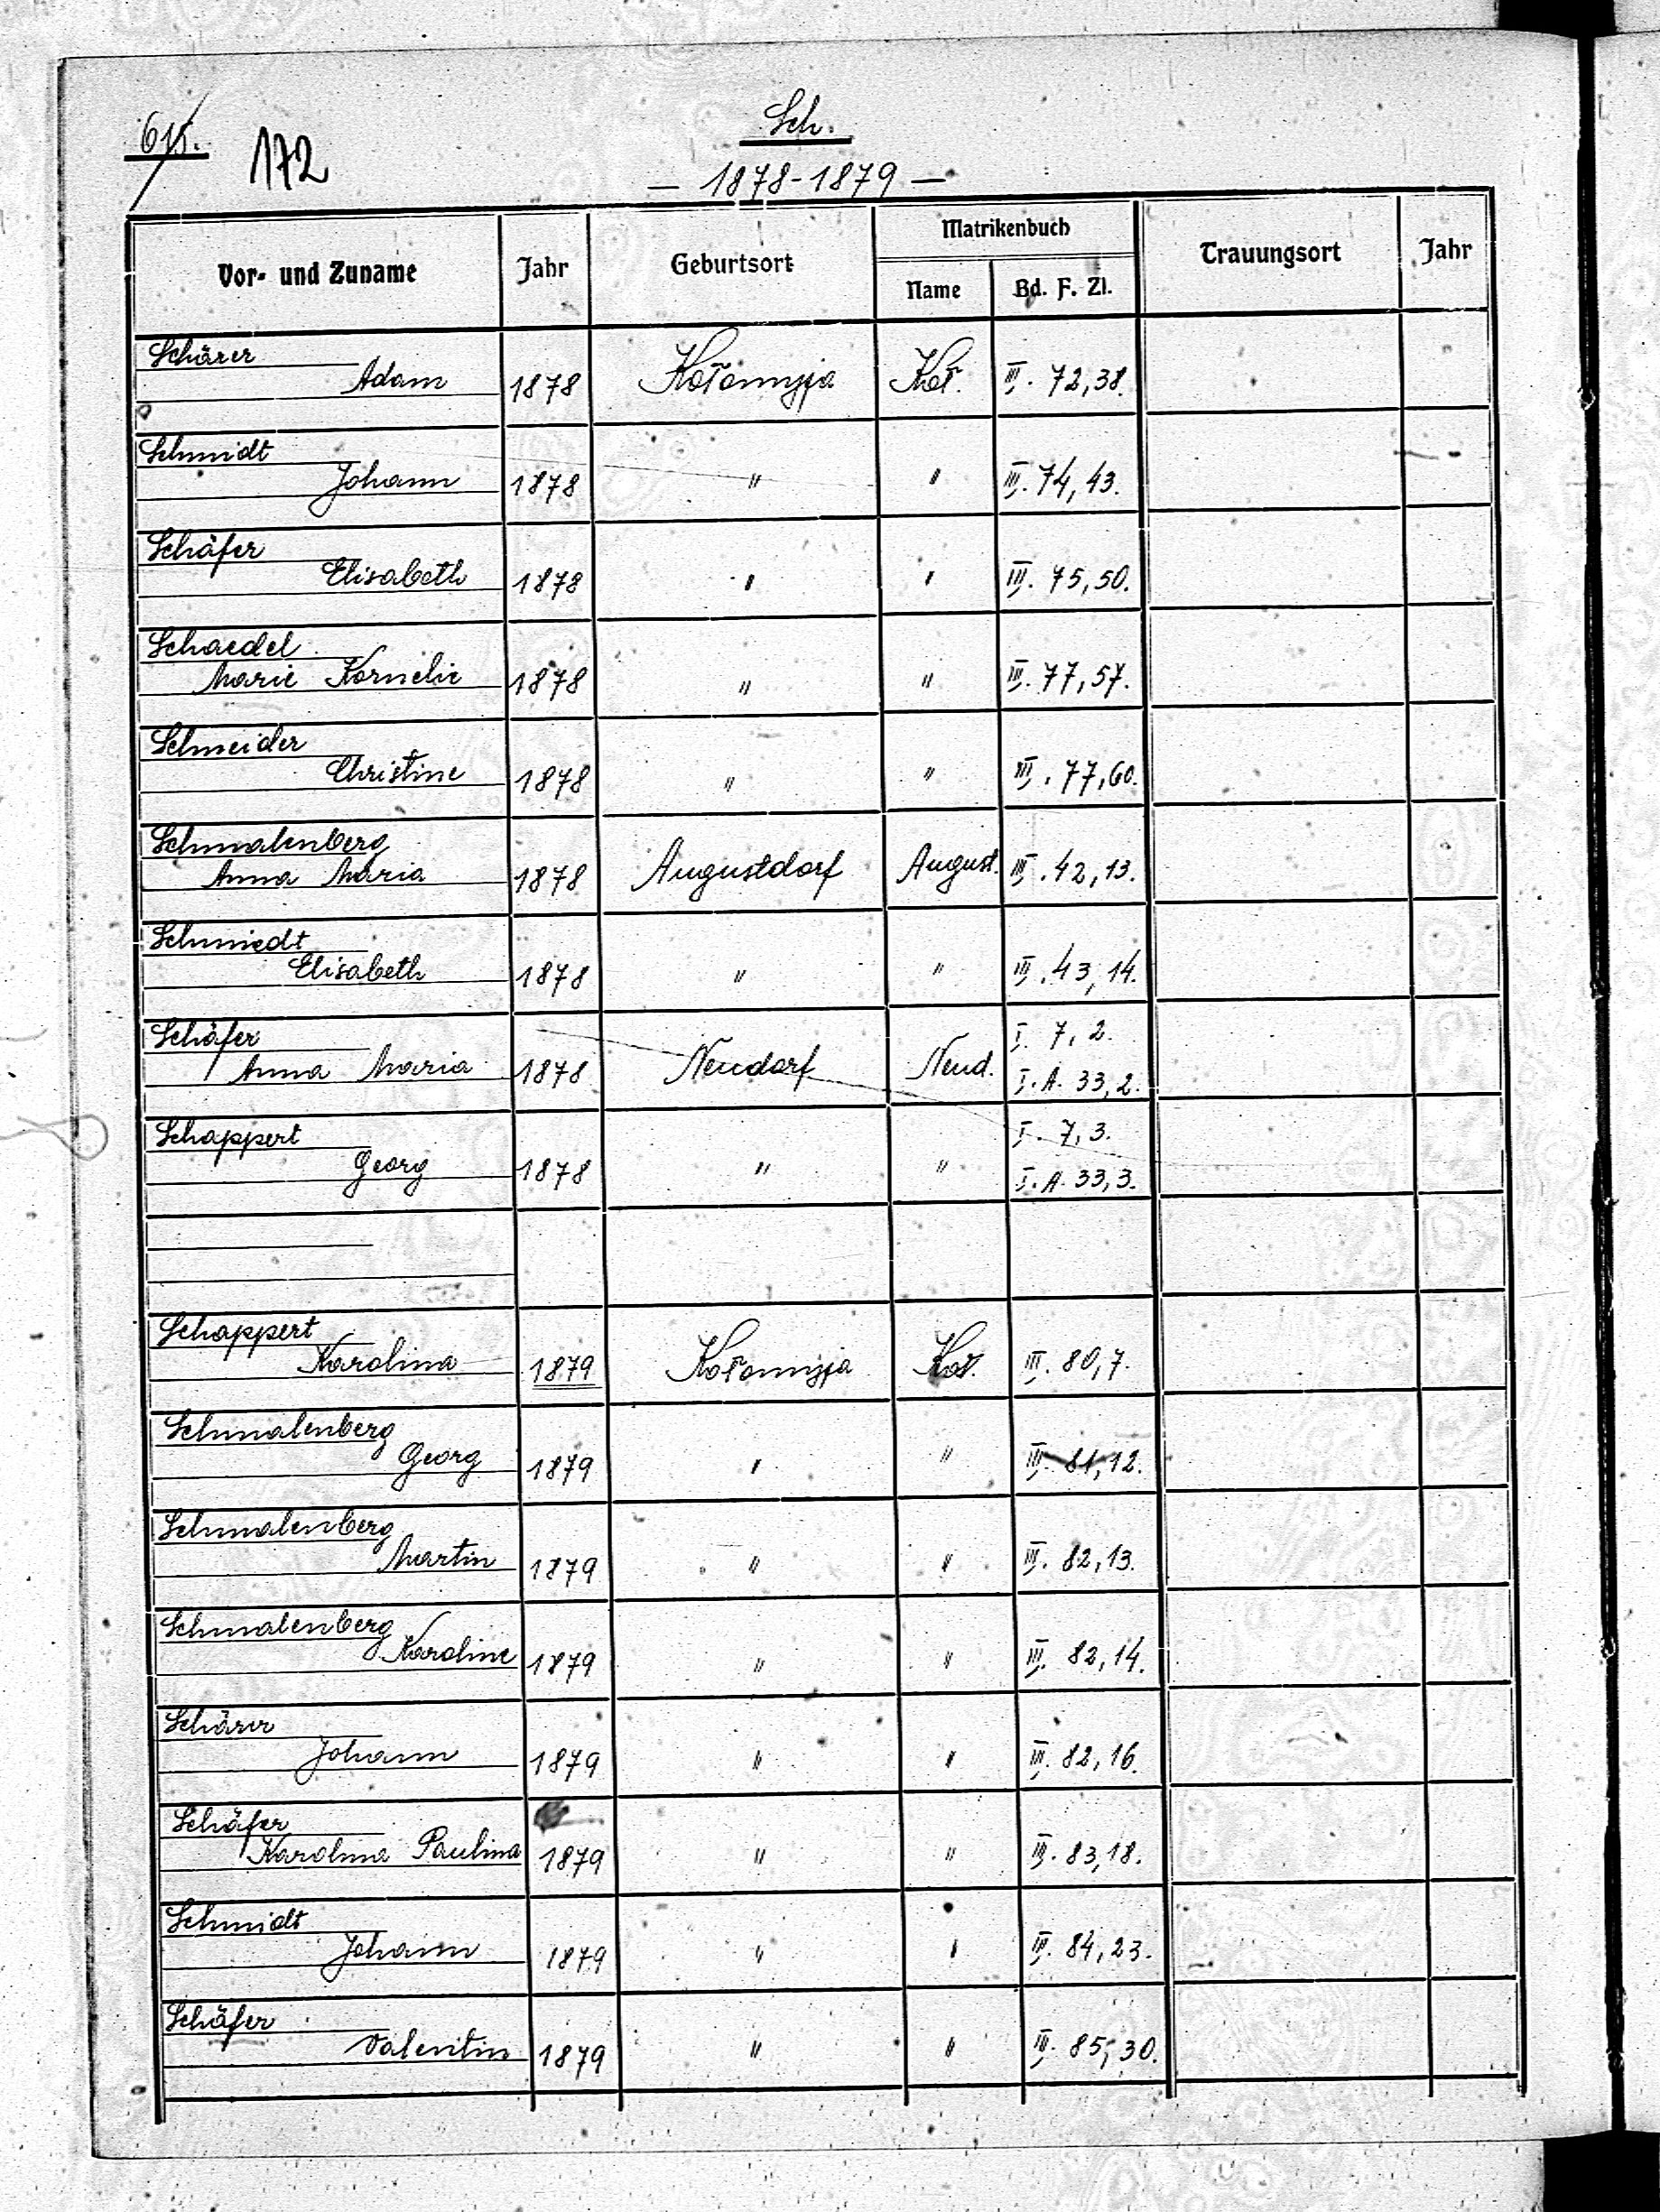 615. 172
Sch.
— 1878-1879 —
Vor- und Zuname Jahr Geburtsort Matrikenbuch Name Bd. F. Zl. Trauungsort Jahr
Schärer
Adam 1878 Kołomyja Koł. III. 72,38.
Schmidt
Johann 1878 " " III. 74,43.
Schäfer
Elisabeth 1878 " " III. 75,50.
Schaedel
Marie Kornelie 1878 " " III. 77,57.
Schneider
Christine 1878 " " III. 77,60.
Schmalenberg
Anna Maria 1878 Augustdorf August. III. 42,13.
Schmiedt
Elisabeth 1878 " " III. 43,14.
Schäfer I. 7,2.
Anna Maria 1878 Neudorf Neud. I. A. 33,2.
Schappert I. 7,3.
Georg 1878 " " I. A. 33,3.
Schappert
Karolina 1879 Kołomyja Koł. III. 80,7.
Schmalenberg
Georg 1879 " " III. 81,12.
Schmalenberg
Martin 1879 " " III. 82,13.
Schmalenberg
Karoline 1879 " " III. 82,14.
Schärer
Johann 1879 " " III. 82,16.
Schäfer
Karolina Paulina 1879 " " III. 83,18.
Schmidt
Johann 1879 " " III. 84,23.
Schäfer
Valentin 1879 " " III. 85,30.